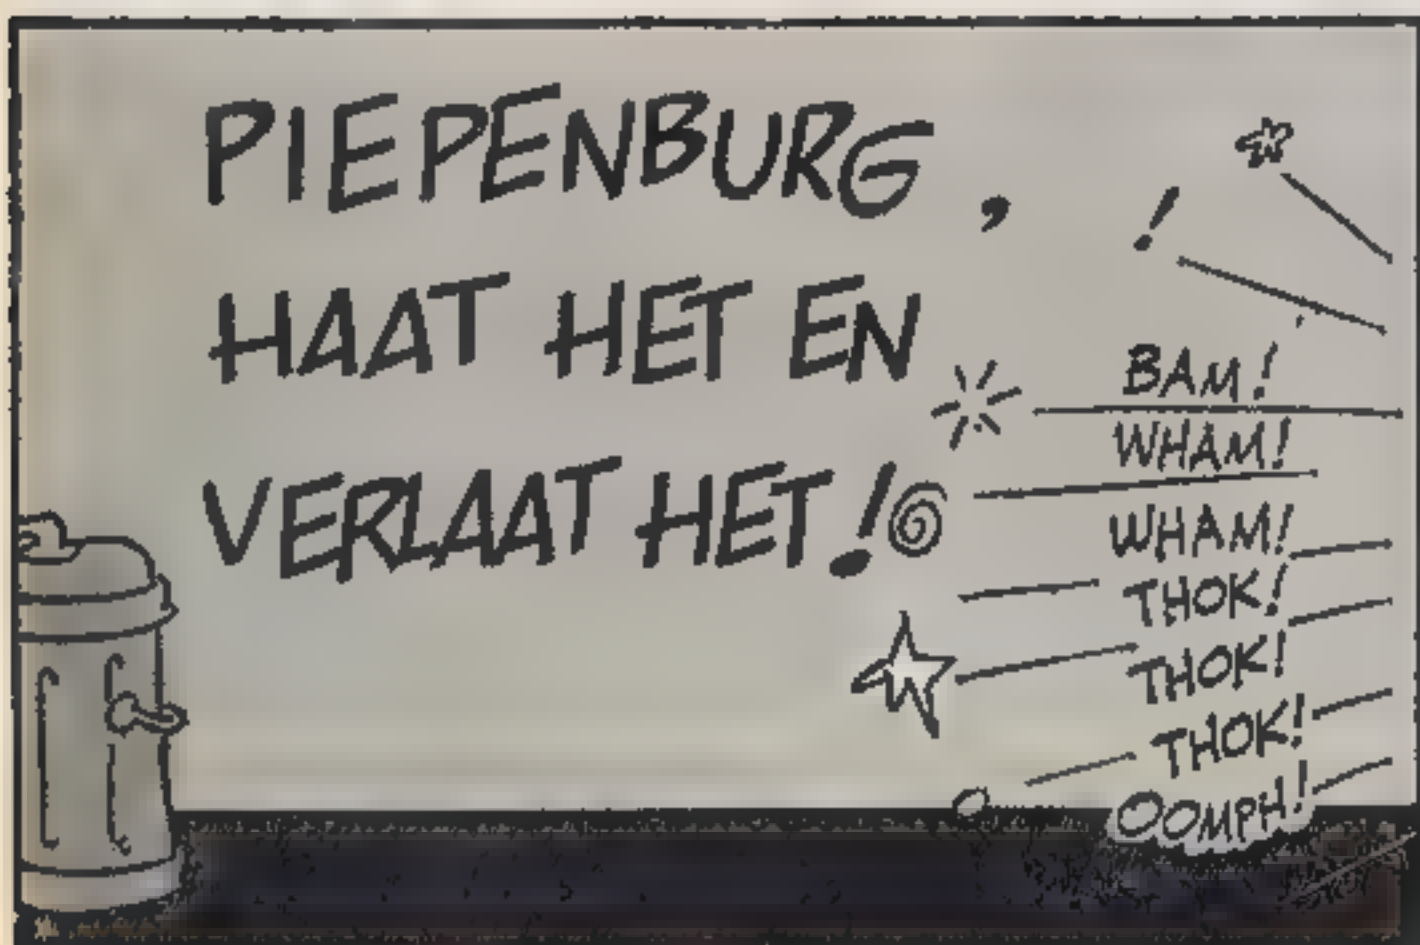 PIEPENBURG,
HAAT HET EN
VERLAAT HET!
!
BAM!
WHAM!
WHAM!
THOK!
THOK!
THOK!
OOMPH!